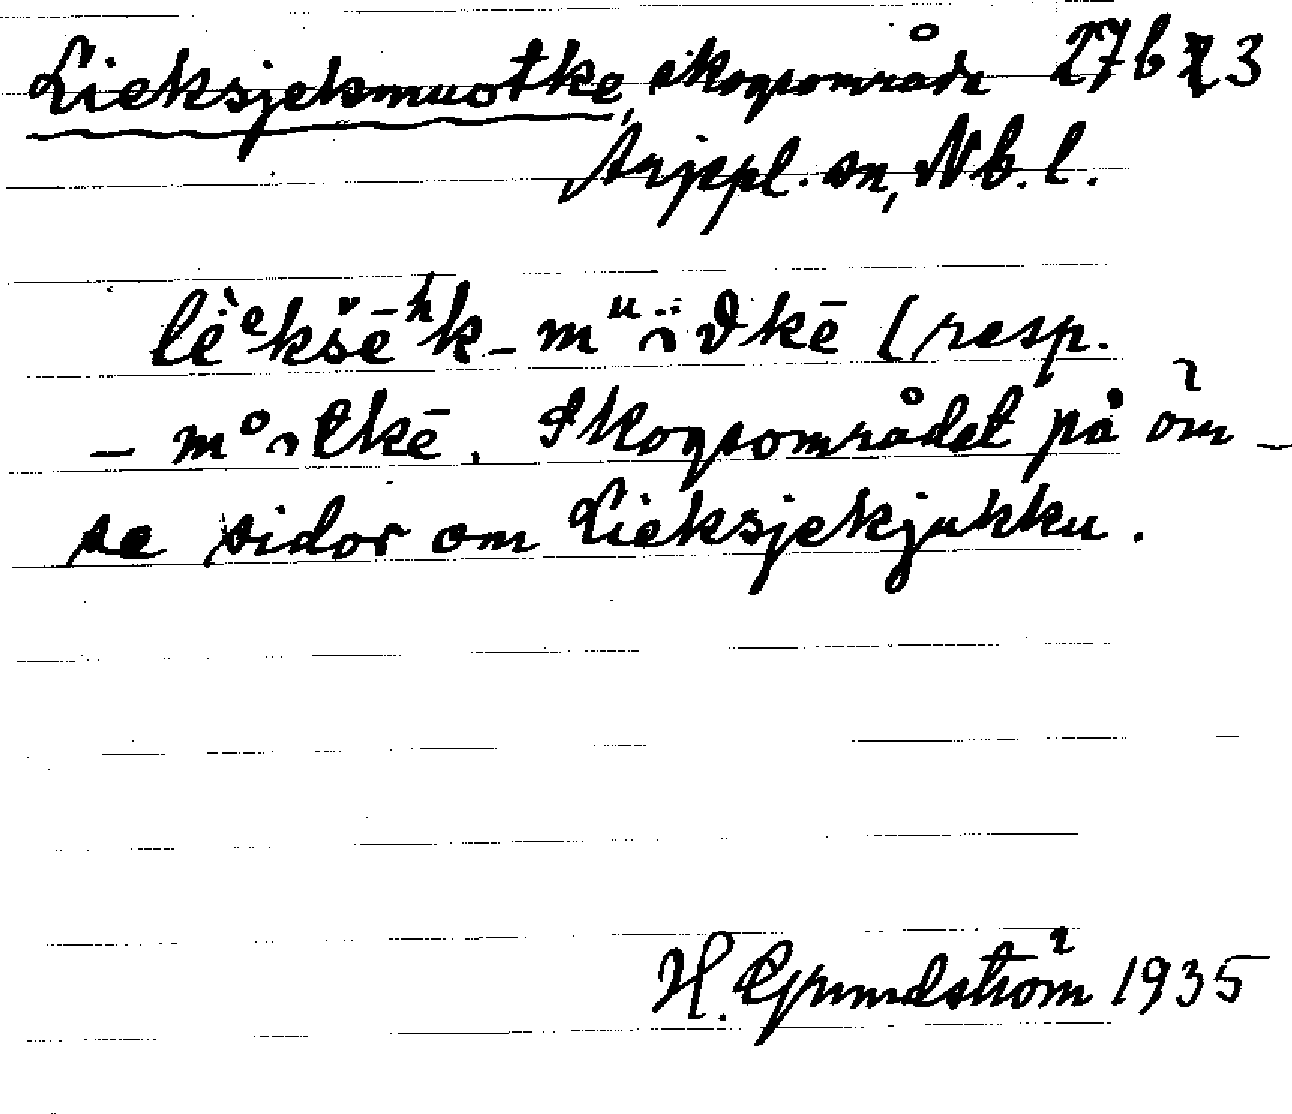 Lieksjekmuotke, skogsområde 27b 3
Arjepl. sn, Nb. l.
(resp.
Skogsområdet på öm-
se sidor om Lieksjekjukku.
H. Grundström 1935